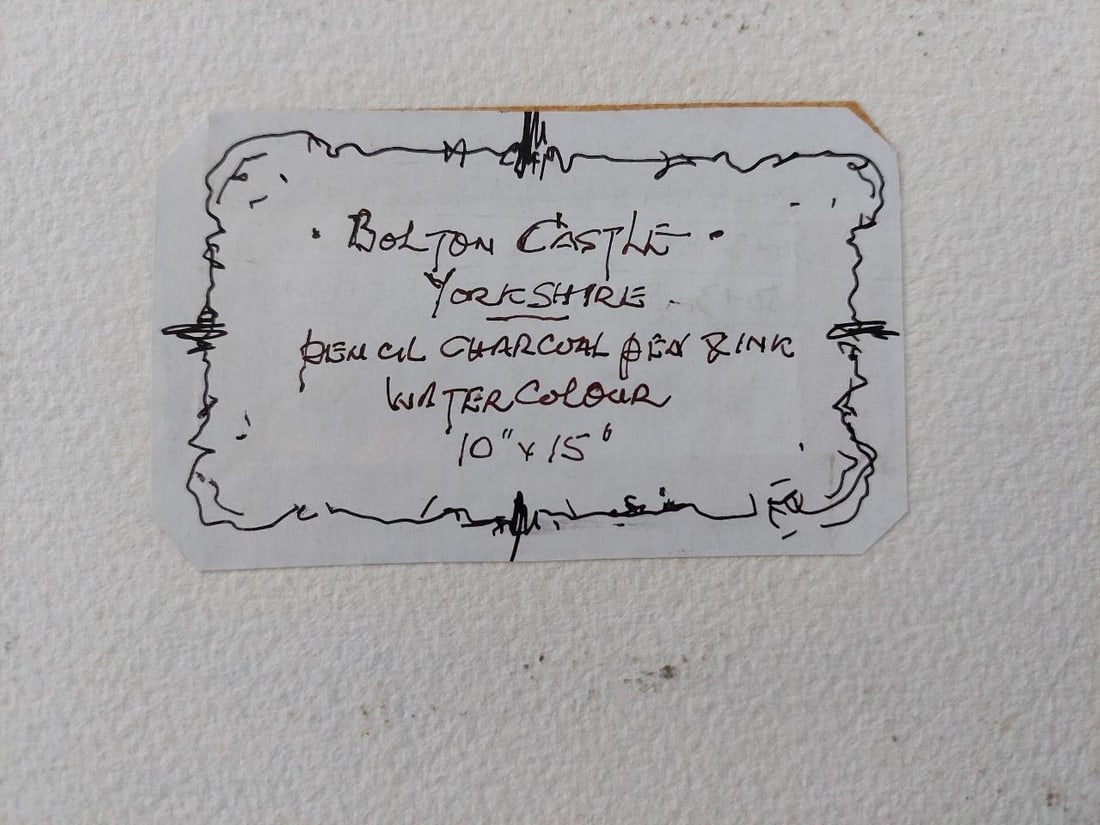 · BOLTON CASTLE ·
YORKSHIRE .
PENCIL CHARCOAL PEN & INK
WATERCOLOUR
10" x 15"